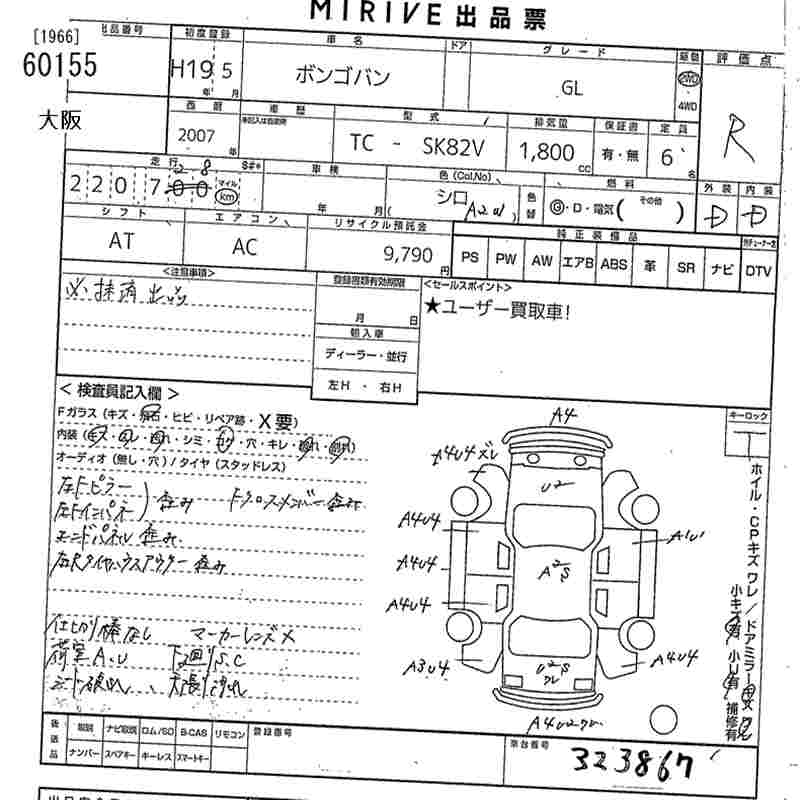 MIRIVE出品票
[1966]
出品番号
60155
大阪
初度登録
H19 5
年 月
車名
ボンゴバン
ドア
グレード
GL
駆動
2WD
4WD
評価点
R
西暦
2007
年
車歴
型式
TC - SK82V
排気量
1,800 cc
保証書
有・無
定員
6 名
走行
S#*
220700
28
マイル
km
車検
年 月
色(Col,No)
シロ
A2W
色替
燃料
G・D・電気( その他 )
外装
内装
D D
シフト
AT
エアコン
AC
リサイクル預託金
9,790 円
純正装備品
PS PW AW エアB ABS 革 SR ナビ DTV
<注意事項>
必抹済出品
登録書類有効期限
月 日
輸入車
ディーラー・並行
左H ・ 右H
<セールスポイント>
★ユーザー買取車!
<検査員記入欄>
Fガラス(キズ・飛石・ヒビ・リペア跡・X要)
内装(キズ・ヨレ・汚れ・シミ・コゲ・穴・キレ・破れ・割れ)
オーディオ(無し・穴)/タイヤ(スタッドレス)
左Fピラー
左Fインパネ
歪み
Fクロスメンバー歪み
エンドパネル 歪み
左Rタイヤハウスアウター 歪み
仕切り棒なし マーカーレンズX
荷室A.U 下廻りS.C
シート破れ 天張り汚れ
A4
A4U4ズレ
U2
A4U4
A1U1
A4U4
A2S
A4U4
A3U4
U2S
ワレ
A4U4
A4U2ワレ
キーロック
ホイル・CPキズワレ/ドアミラーキズワレ
小キズ有 小U有 補修有
後送品
取説
ナビ取説
ロム/SD
B-CAS
リモコン
ナンバー
スペアキー
キーレス
スマートキー
登録番号
車台番号
323867